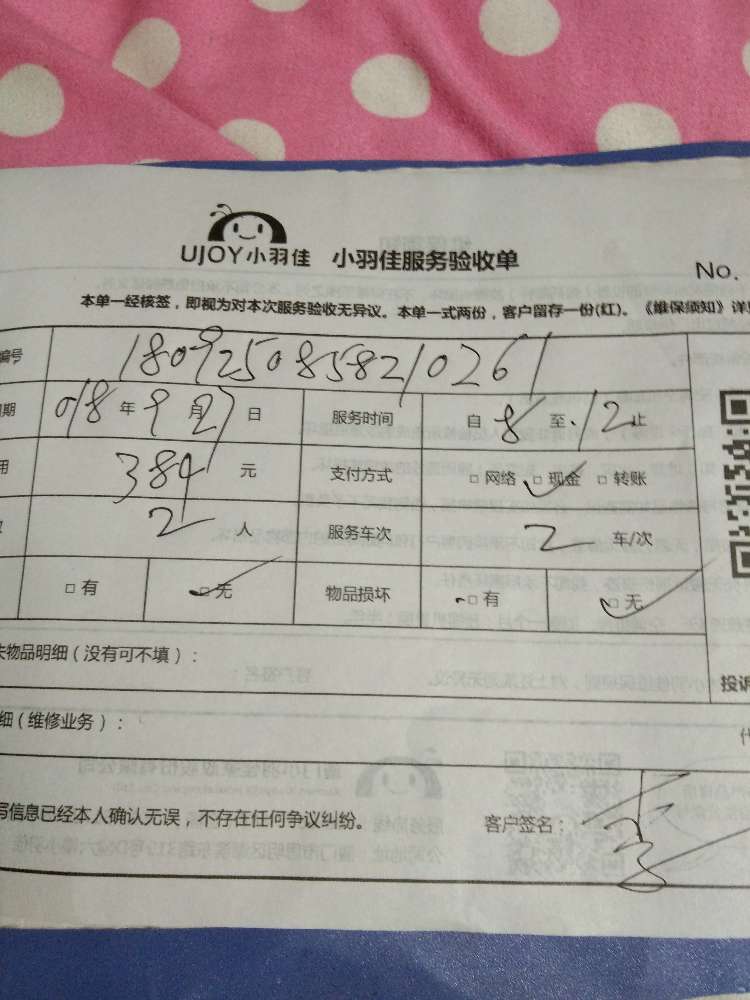 UJOY小羽佳 小羽佳服务验收单
No.
本单一经核签，即视为对本次服务验收无异议。本单一式两份，客户留存一份(红)。《维保须知》详
编号 1809250858210261
期 018年9月27日 服务时间 自8至12止
用 384元 支付方式 □网络 □现金 □转账
2人 服务车次 2车/次
□有 □无 物品损坏 □有 □无
失物品明细（没有可不填）： 投诉
细（维修业务）：
写信息已经本人确认无误，不存在任何争议纠纷。 客户签名：